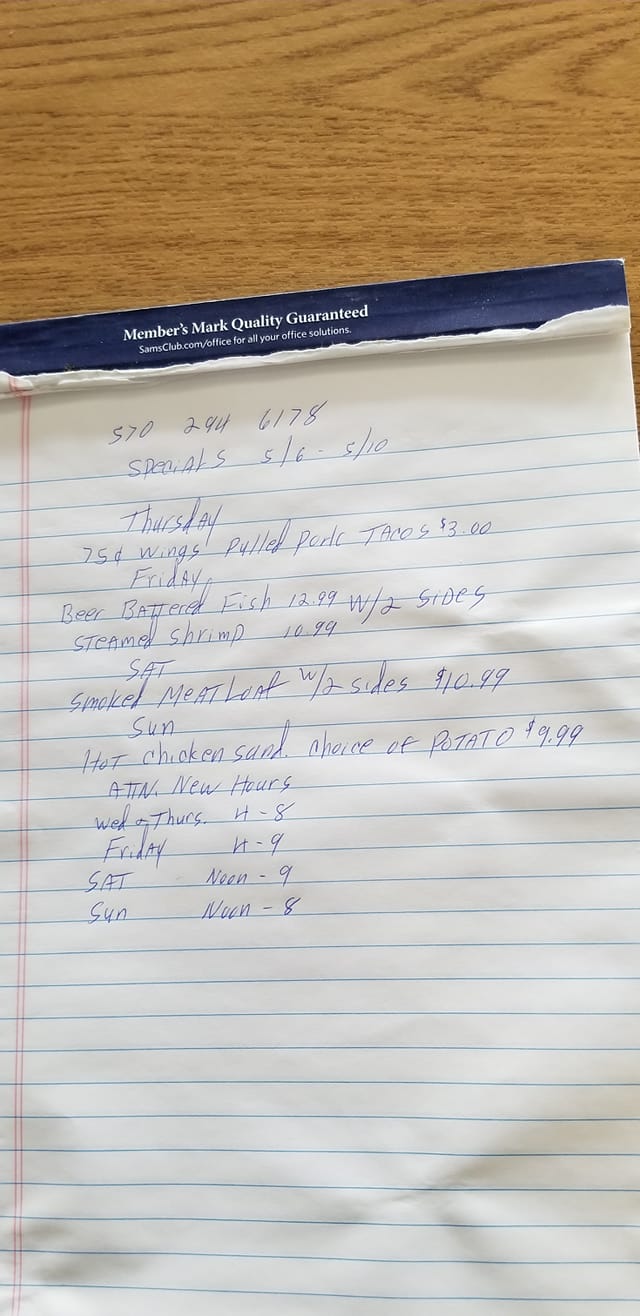 Member's Mark Quality Guaranteed
SamsClub.com/office for all your office solutions.
570 294 6178
Specials 5/6 - 5/10
Thursday
75¢ Wings Pulled Pork Tacos $3.00
Friday
Beer Battered Fish 12.99 W/2 SiDes
Steamed Shrimp 10.99
SAT
Smoked Meat Loaf W/2 sides $10.99
Sun
Hot Chicken sand. choice of POTATO $9.99
ATTN. New Hours
Wed & Thurs. 4 - 8
Friday 4 - 9
SAT Noon - 9
Sun Noon - 8